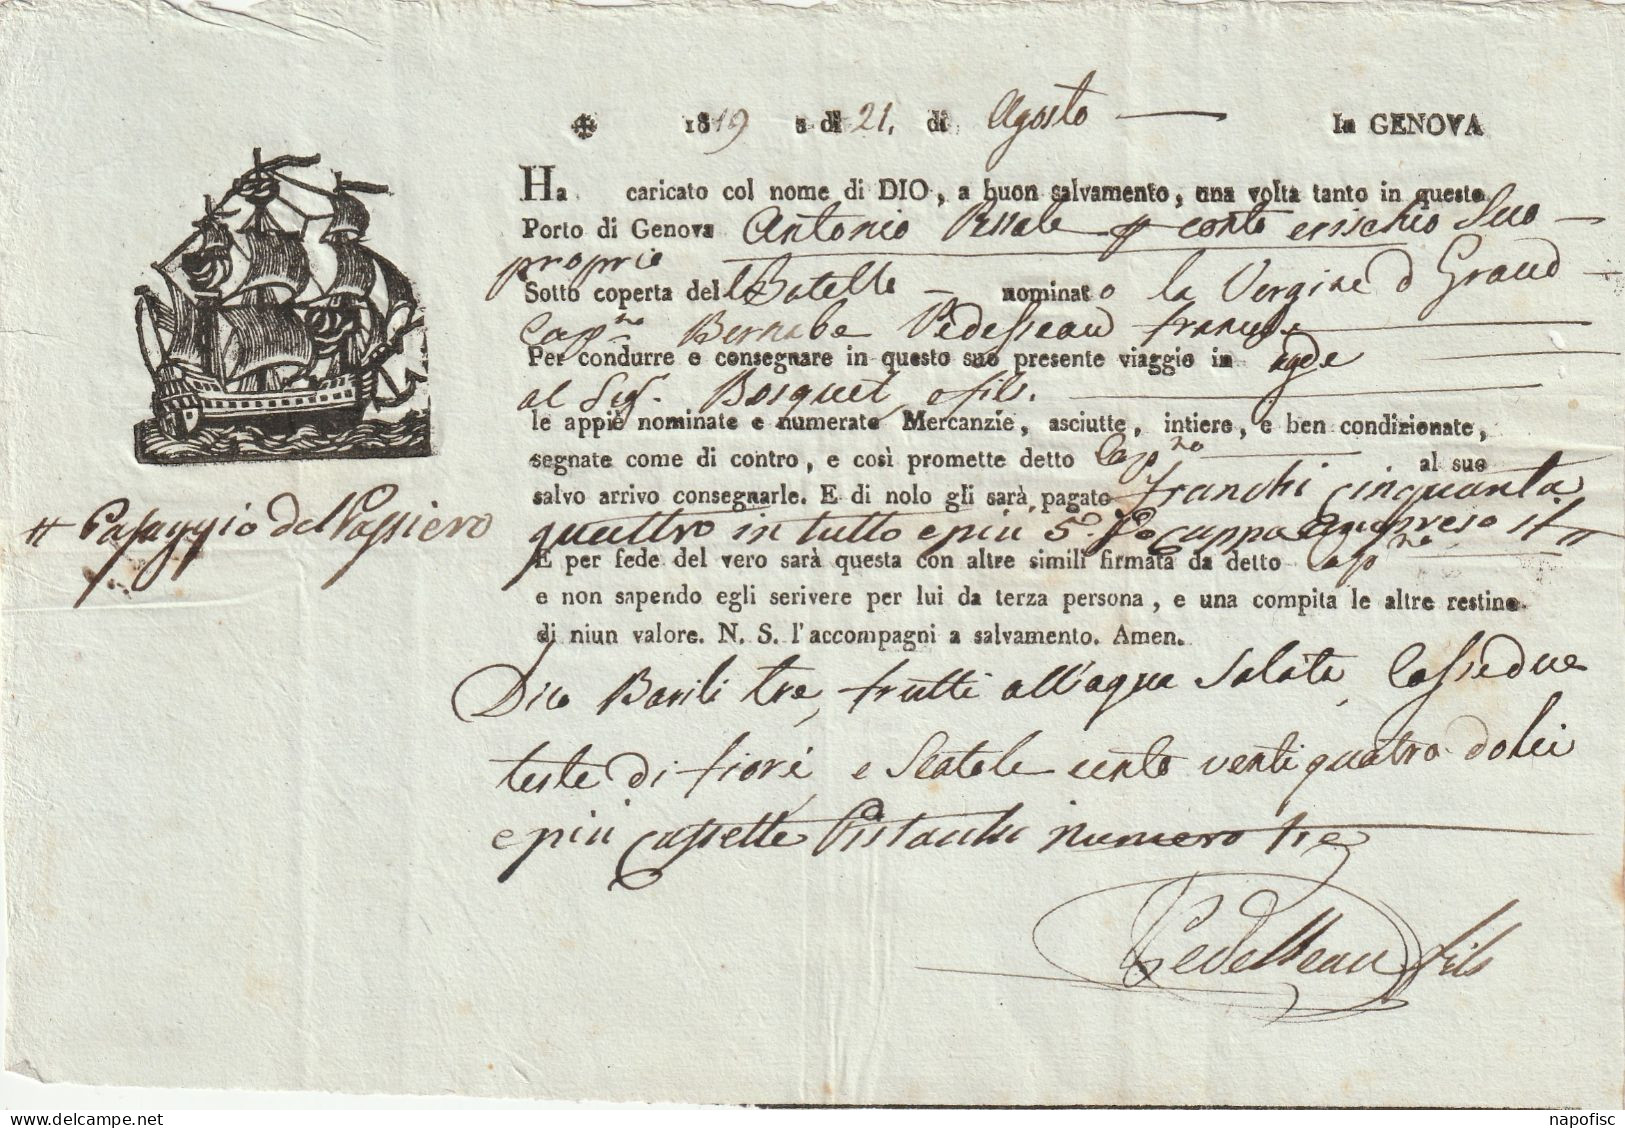 ✠ 1819 a di 21. di Agosto In GENOVA
Ha caricato col nome di DIO, a buon salvamento, una volta tanto in questo
Porto di Genova Antonio conto e rischio Suo
proprio
Sotto coperta del Batello nominato la Vergine d Graud
Capno Bernabe Pedesseau franese
Per condurre e consegnare in questo suo presente viaggio in agde
al Sigr. Bosquet e fils.
le appiè nominate e numerate Mercanzie, asciutte, intiere, e ben condizionate,
segnate come di contro, e così promette detto Capno al suo
salvo arrivo consegnarle. E di nolo gli sarà pagato franchi cinquanta
quattro in tutto e piu 5 cappa Compreso il #
# Passaggio del Passiero
E per fede del vero sarà questa con altre simili firmata da detto Capno
e non sapendo egli scrivere per lui da terza persona, e una compita le altre restino
di niun valore. N. S. l'accompagni a salvamento. Amen.
Dico Barili tre, frutti all'acqua Salata, Casse due
teste di fiori e Scatole cento venti quatro dolci
e piu Cassette Pistacchi numero tre
Pedesseau fils
delcampe.net
napofisc